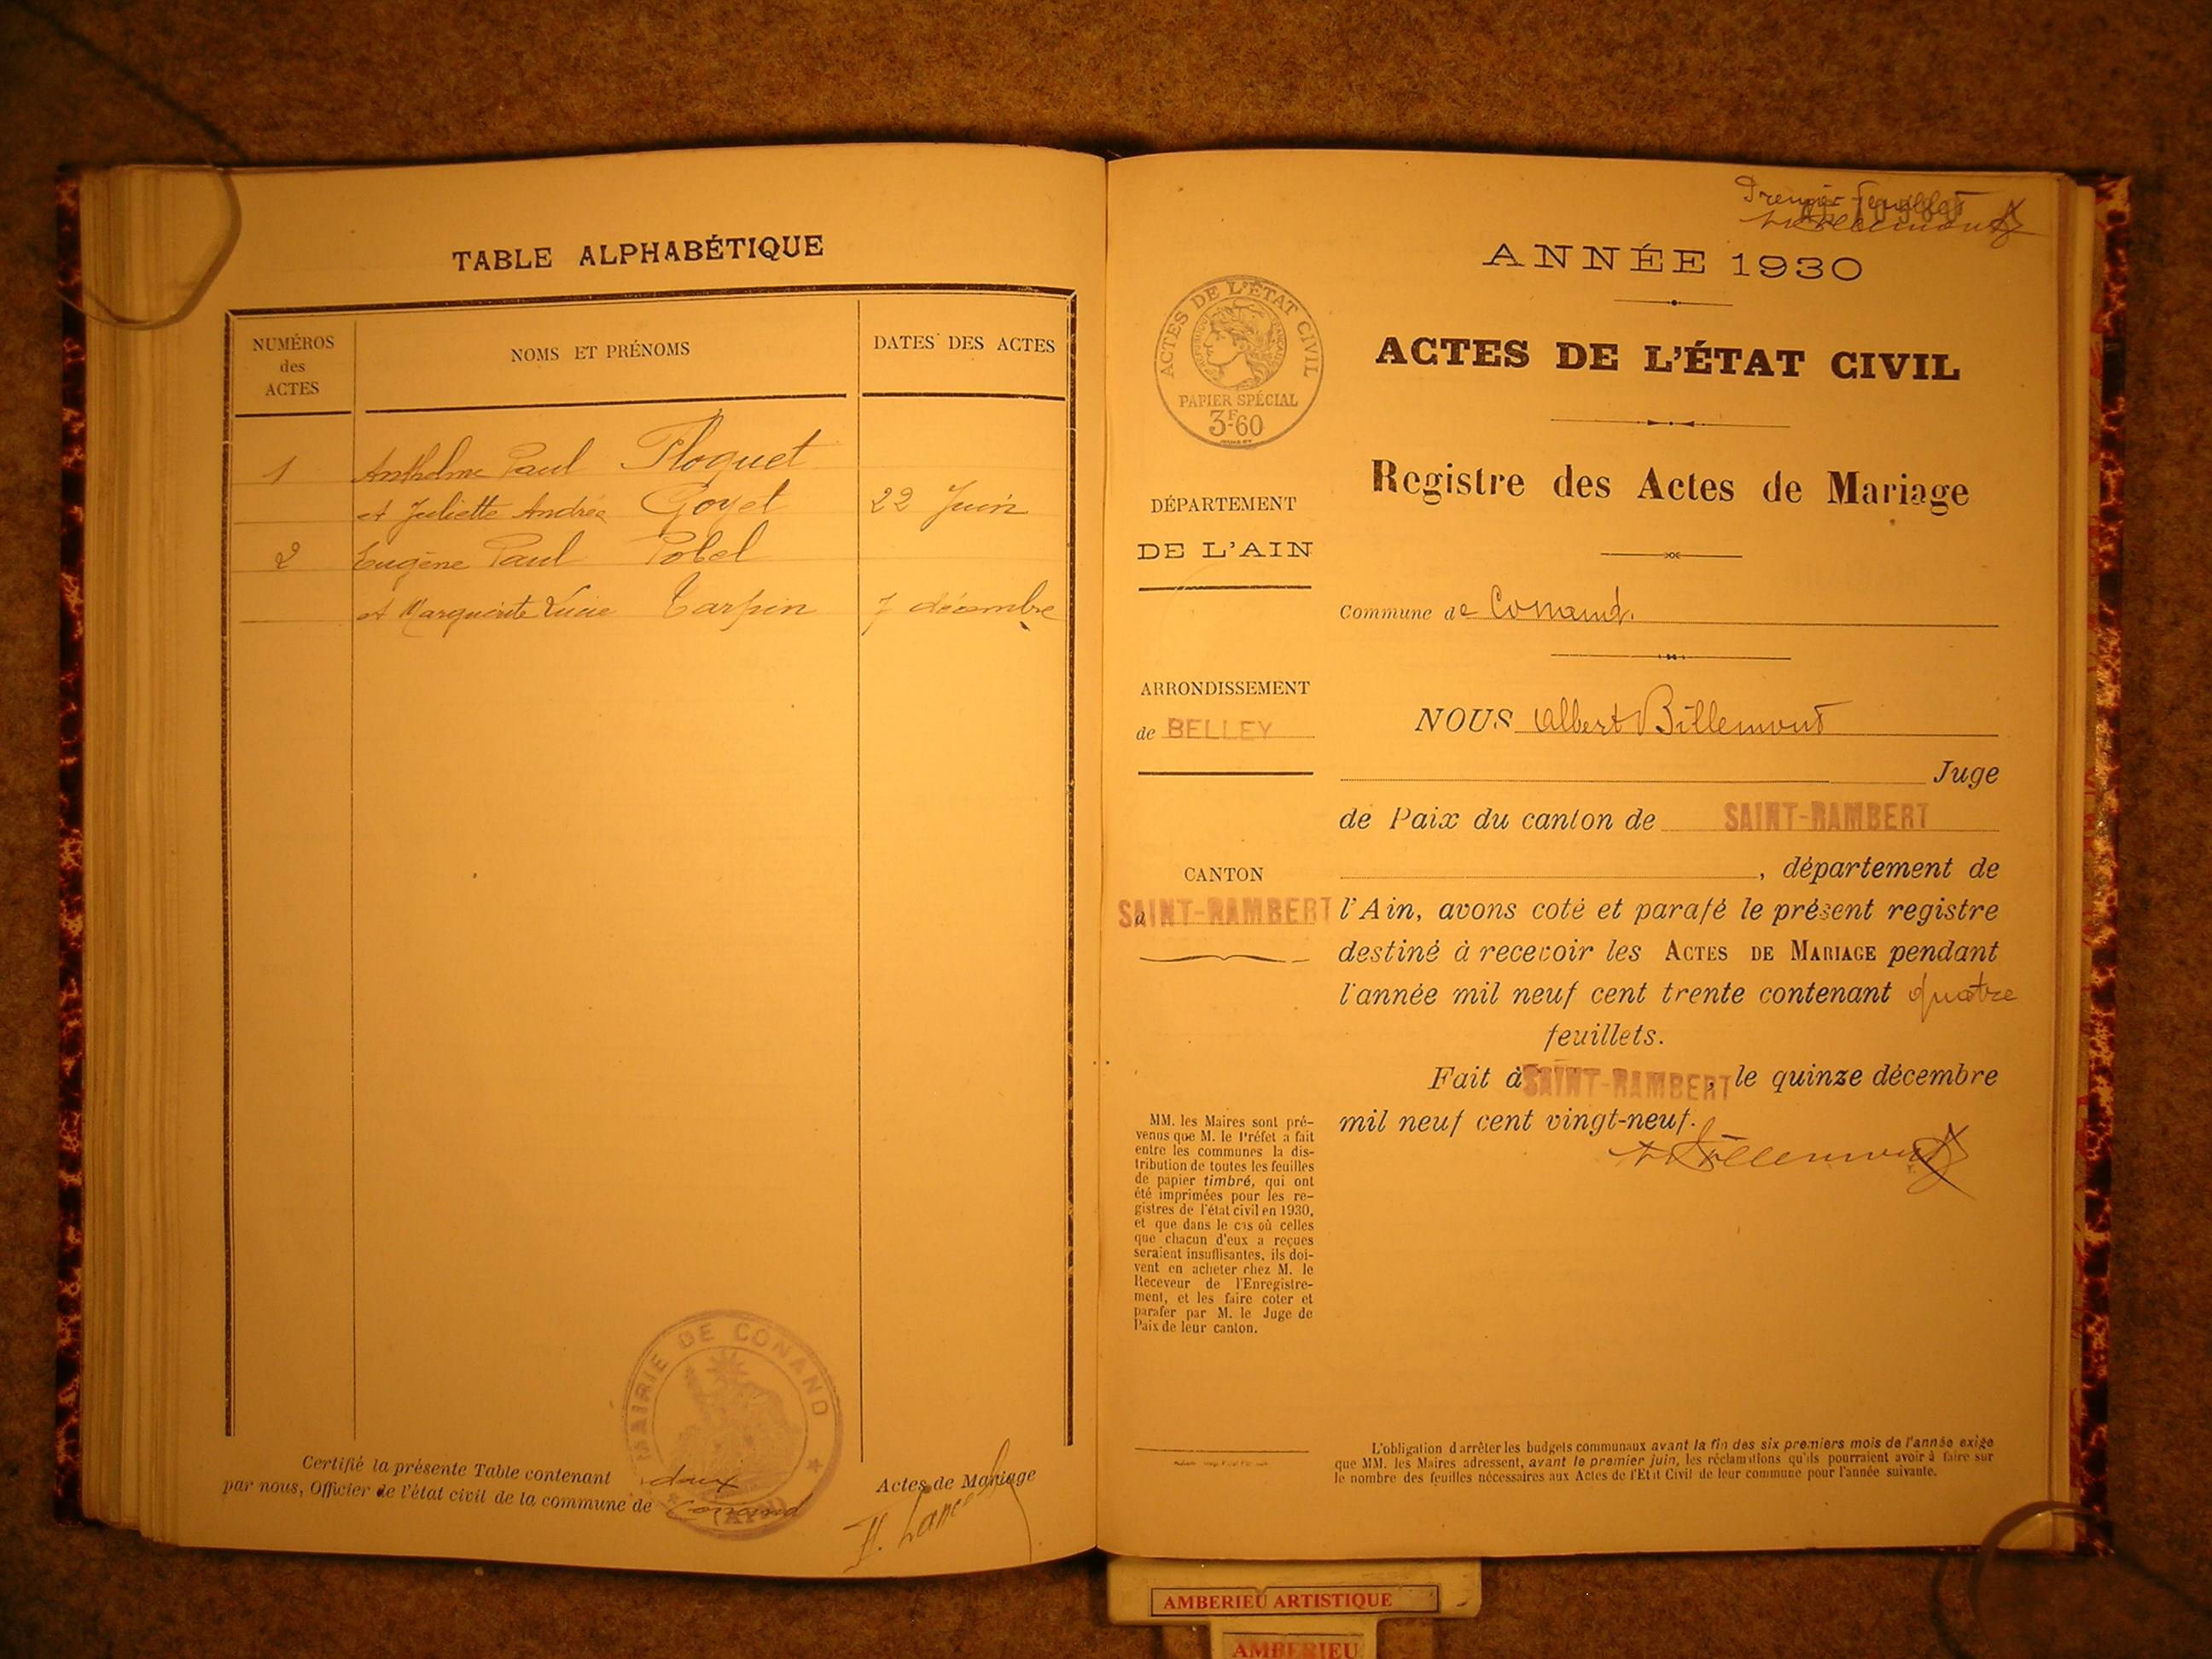 TABLE ALPHABÉTIQUE
NUMÉROS
des
ACTES
NOMS ET PRÉNOMS
DATES DES ACTES
1 Anthelme Paul Floquet
et Juliette Andrée Goyet 22 Juin
2 Eugène Paul Pobel
et Marguerite Lucie Carpin 7 décembre
Certifié la présente Table contenant deux Actes de Mariage
par nous, Officier de l'état civil de la commune de Conand
MAIRIE DE CONAND
(AIN)
Premier feuillet
ANNÉE 1930
ACTES DE L'ÉTAT CIVIL
Registre des Actes de Mariage
ACTES DE L'ÉTAT CIVIL
RÉPUBLIQUE FRANÇAISE
PAPIER SPÉCIAL
3F60
DÉPARTEMENT
DE L'AIN
ARRONDISSEMENT
de BELLEY
CANTON
d SAINT-RAMBERT
MM. les Maires sont pré-
venus que M. le Préfet a fait
entre les communes la dis-
tribution de toutes les feuilles
de papier timbré, qui ont
été imprimées pour les re-
gistres de l'état civil en 1930,
et que dans le cas où celles
que chacun d'eux a reçues
seraient insuffisantes, ils doi-
vent en acheter chez M. le
Receveur de l'Enregistre-
ment, et les faire coter et
parafer par M. le Juge de
Paix de leur canton.
Commune de Conand.
NOUS Albert Billemont
Juge
de Paix du canton de SAINT-RAMBERT
, département de
l'Ain, avons coté et parafé le présent registre
destiné à recevoir les ACTES DE MARIAGE pendant
l'année mil neuf cent trente contenant quatre
feuillets.
Fait à SAINT-RAMBERT, le quinze décembre
mil neuf cent vingt-neuf.
L'obligation d'arrêter les budgets communaux avant la fin des six premiers mois de l'année exige
que MM. les Maires adressent, avant le premier juin, les réclamations qu'ils pourraient avoir à faire sur
le nombre des feuilles nécessaires aux Actes de l'Etat Civil de leur commune pour l'année suivante.
AMBERIEU ARTISTIQUE
AMBERIEU